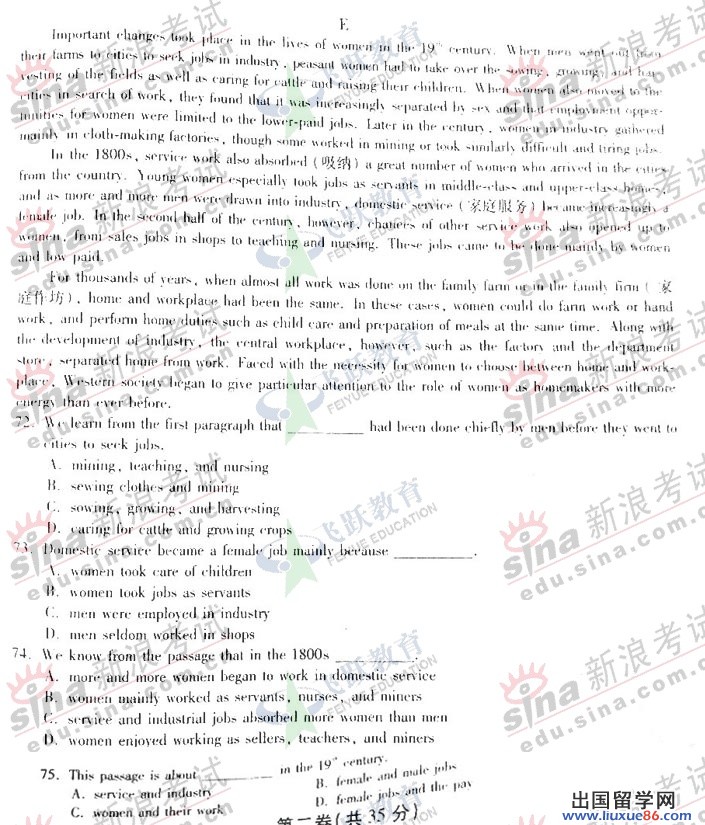 E
Important changes took place in the lives of women in the 19th century. When men went out from
their farms to cities to seek jobs in industry, peasant women had to take over the sowing, growing, and har-
vesting of the fields as well as caring for cattle and raising their children. When women also moved to the
cities in search of work, they found that it was increasingly separated by sex and that employment oppor-
tunities for women were limited to the lower-paid jobs. Later in the century, women in industry gathered
mainly in cloth-making factories, though some worked in mining or took similarly difficult and tiring jobs.
In the 1800s, service work also absorbed (吸纳) a great number of women who arrived in the cities
from the country. Young women especially took jobs as servants in middle-class and upper-class homes,
and as more and more men were drawn into industry, domestic service (家庭服务) became increasingly a
female job. In the second half of the century, however, chances of other service work also opened up to
women, from sales jobs in shops to teaching and nursing. These jobs came to be done mainly by women
and low paid.
For thousands of years, when almost all work was done on the family farm or in the family firm (家
庭作坊), home and workplace had been the same. In these cases, women could do farm work or hand
work, and perform home duties such as child care and preparation of meals at the same time. Along with
the development of industry, the central workplace, however, such as the factory and the department
store, separated home from work. Faced with the necessity for women to choose between home and work-
place, Western society began to give particular attention to the role of women as homemakers with more
energy than ever before.
72. We learn from the first paragraph that __________ had been done chiefly by men before they went to
cities to seek jobs.
A. mining, teaching, and nursing
B. sewing clothes and mining
C. sowing, growing, and harvesting
D. caring for cattle and growing crops
73. Domestic service became a female job mainly because __________.
A. women took care of children
B. women took jobs as servants
C. men were employed in industry
D. men seldom worked in shops
74. We know from the passage that in the 1800s __________.
A. more and more women began to work in domestic service
B. women mainly worked as servants, nurses, and miners
C. service and industrial jobs absorbed more women than men
D. women enjoyed working as sellers, teachers, and miners
75. This passage is about __________ in the 19th century.
A. service and industry B. female and male jobs
C. women and their work D. female jobs and the pay
第二卷(共35分)
sina 新浪考试
edu.sina.com.cn
飞跃教育
FEIYUE EDUCATION
出国留学网
www.liuxue86.com